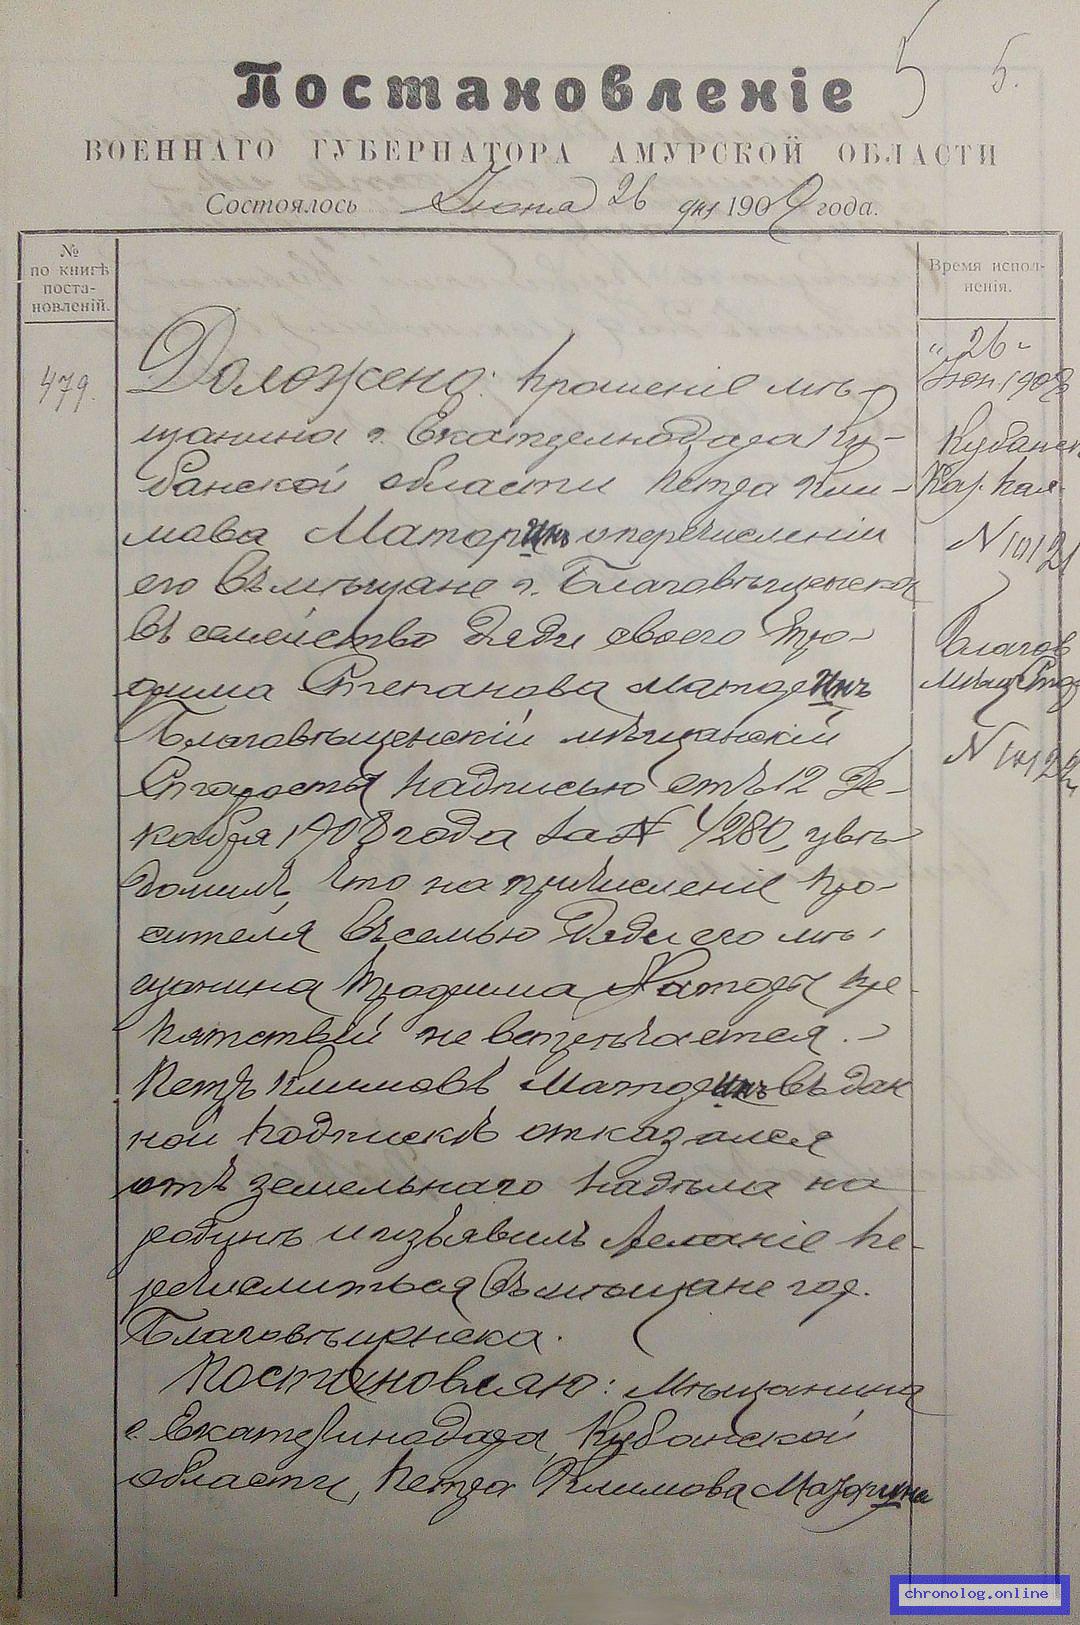 5 5.
Постановленіе
ВОЕННАГО ГУБЕРНАТОРА АМУРСКОЙ ОБЛАСТИ
Состоялось Іюня 26 дня 1909 года.
№
по книгѣ
поста-
новленій.
Время испол-
ненія.
479.
Доложено: Прошеніе мѣ-
щанина г. Екатеринодара Ку-
банской области Петра Кли-
мова Маторинъ о перечисленіи
его въ мѣщане г. Благовѣщенска
въ семейство дяди своего Тро-
фима Степанова Маторинъ
Благовѣщенскій мѣщанскій
Староста надписью отъ 12 Де-
кабря 1908 года за № 4280, увѣ-
домилъ, что на причисленіе про-
сителя въ семью дяди его мѣ-
щанина Трофима Маторы пре-
пятствій не встрѣчается.
Петръ Климовъ Маторинъ въ дан
ной подпискѣ отказался
отъ земельнаго надѣла на
родинѣ и изъявилъ желаніе пе-
речислиться въ мѣщане гор.
Благовѣщенска.
Постановляю: Мѣщанина
г. Екатеринодара, Кубанской
области, Петра Климова Маторина
„ 26 „
Іюн 1909
Кубанск
Каз. Пал
N 10121
Благов
Мѣщ Стар
N 10122
chronolog.online